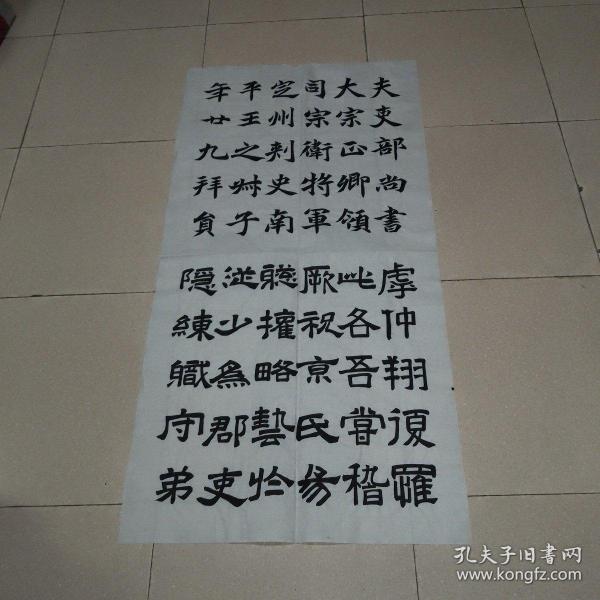 夫吏部尚書
大宗正卿領
司宗衛將軍
定州刺史南
平王之第子
年廿九拜員
虖仲翔復羅
此各吾嘗稽
厥祝京民易
聰擁略藝於
從少為郡吏
隱練職守弟
孔夫子旧书网
www.kongfz.com